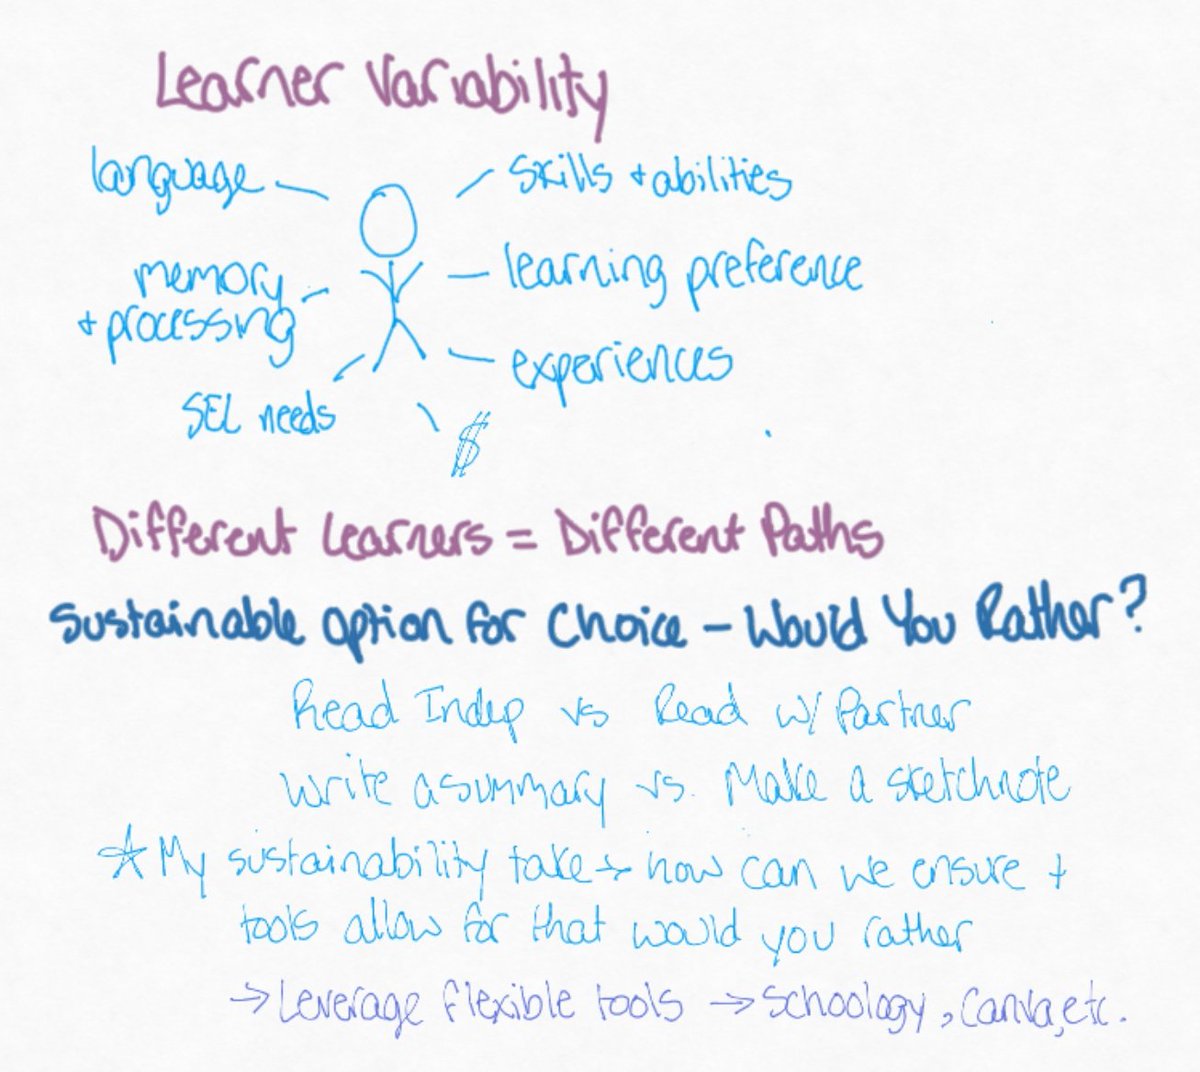 Learner Variability
language
skills + abilities
memory
+ processing
learning preference
experiences
SEL needs
$
Different Learners = Different Paths
Sustainable Option for Choice - Would You Rather?
Read Indep vs Read w/ Partner
Write a summary vs. Make a sketchnote
☆ My sustainability take → how can we ensure +
tools allow for that would you rather
→ Leverage flexible tools → Schoology, Canva, etc.